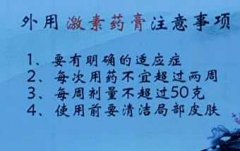 外用激素药膏注意事项
1、要有明确的适应症
2、每次用药不宜超过两周
3、每周剂量不超过50克
4、使用前要清洁局部皮肤